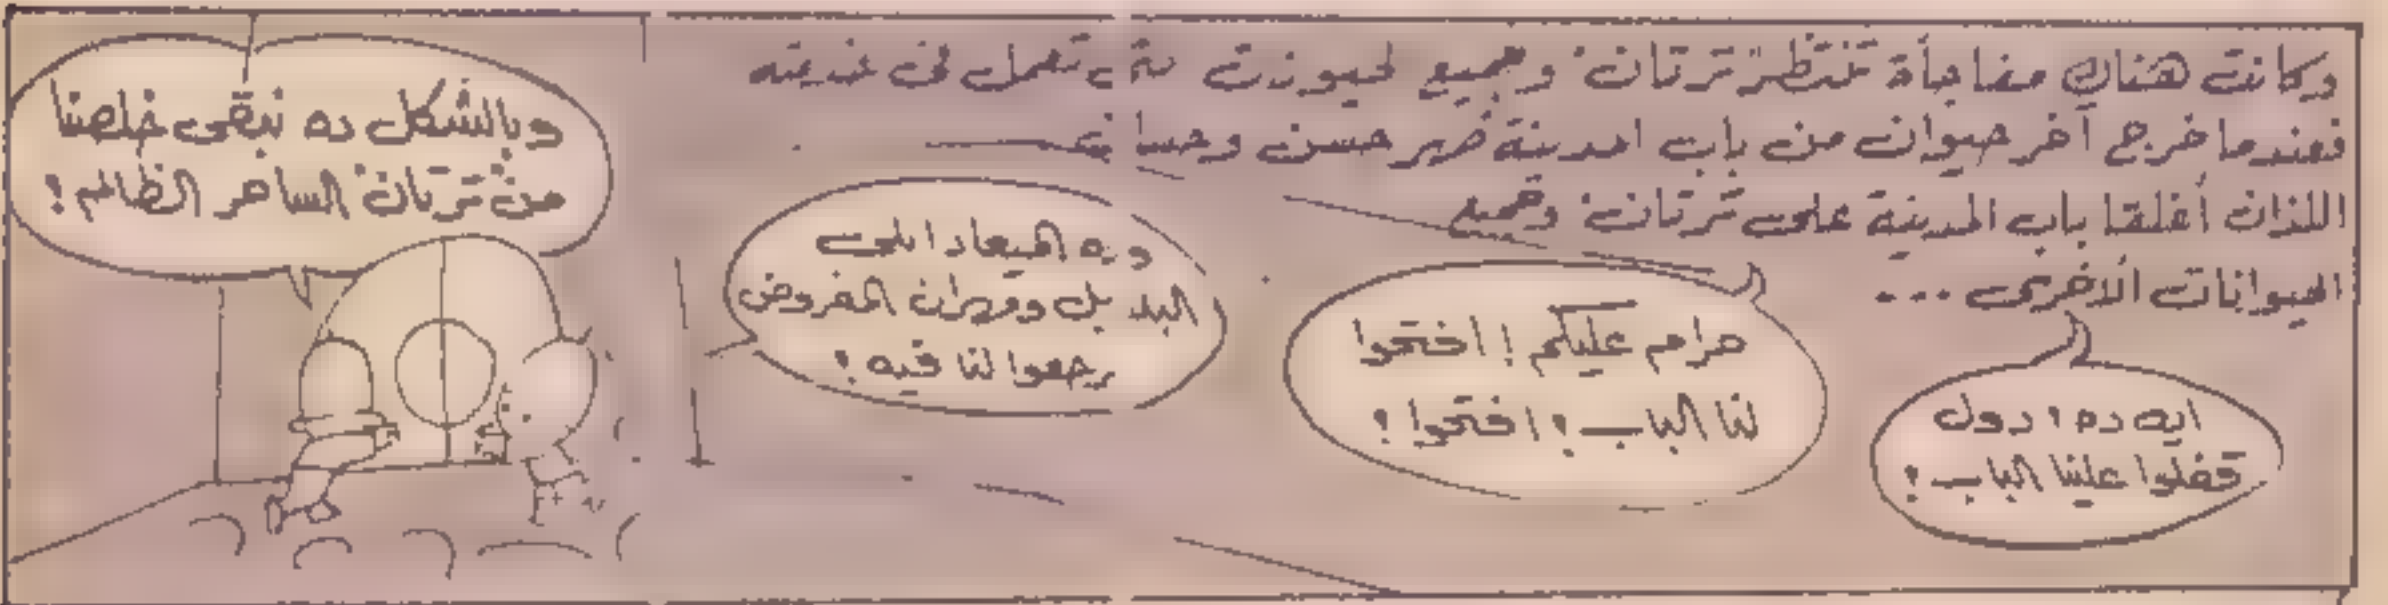 وكانت هناك مفاجأة تنتظر ترتان وجميع الحيوانات تعمل في
فعندما خرج آخر حيوان من باب المدينة ظهر حسن وحسان
اللذان أغلقا باب المدينة على ترتان وجميع
الحيوانات الأخرى ...
ايه ده؟ دول
قفلوا علينا الباب!
حرام عليكم! افتحوا
لنا الباب! افتحوا!
وده الميعاد اللي
المفروض
يرجعوا لنا فيه!
وبالشكل ده نبقى خلصنا
من ترتان الساحر الظالم!